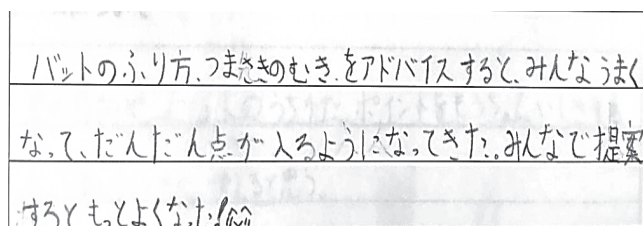 バットのふり方、つまさきのむき、をアドバイスすると、みんなうまく
なって、だんだん点が入るようになってきた。みんなで提案
するともっとよくなった!^^